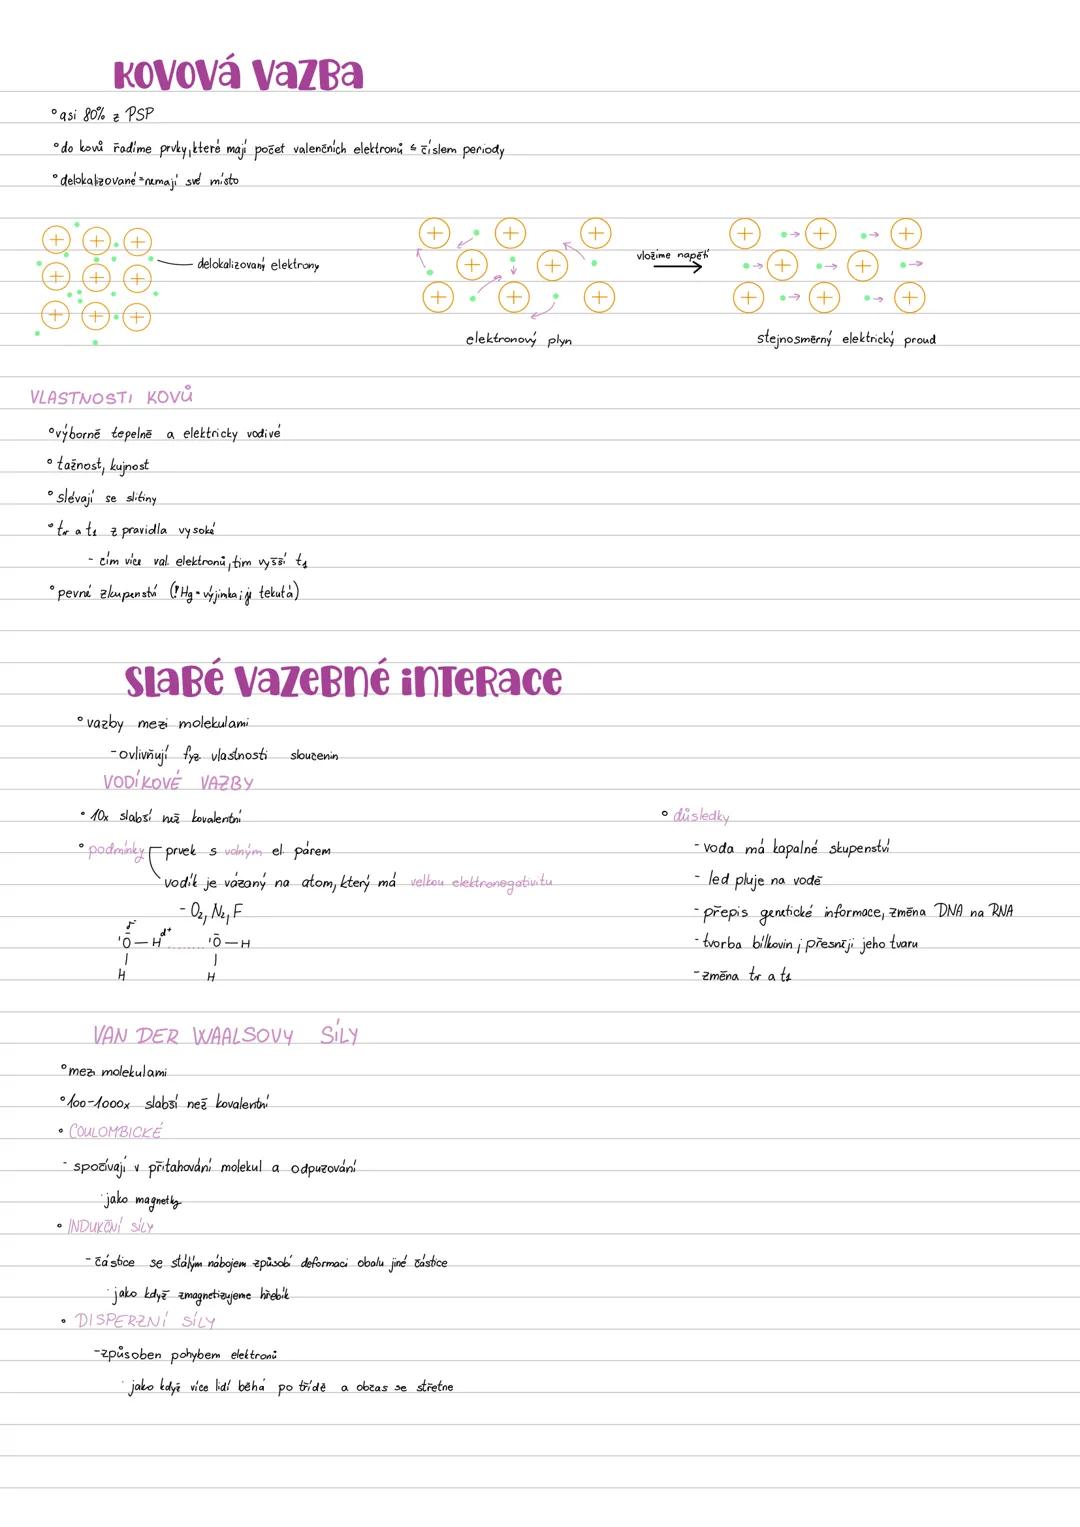 KOVOVÁ VAZBA
° asi 80% z PSP
° do kovů řadíme prvky, které mají počet valenčních elektronů ≤ číslem periody
° delokalizované = nemají své místo
delokalizovaný elektrony
vložíme napětí
elektronový plyn
stejnosměrný elektrický proud
VLASTNOSTI KOVŮ
° výborně tepelně a elektricky vodivé
° tažnost, kujnost
° slévají se slitiny
° tᵥ a t₁ z pravidla vysoké
- čím více val. elektronů, tím vyšší t₁
° pevné skupenství (! Hg = výjimka; je tekutá)
SLABÉ VAZEBNÉ INTERACE
° vazby mezi molekulami
- ovlivňují fyz. vlastnosti sloučenin
VODÍKOVÉ VAZBY
° 10x slabší než kovalentní
° podmínky
prvek s volným el. párem
vodík je vázaný na atom, který má velkou elektronegativitu
- O₂, N₂, F
O — H ........ O — H
H H
° důsledky
- voda má kapalné skupenství
- led pluje na vodě
- přepis genetické informace, změna DNA na RNA
- tvorba bílkovin; přesněji jeho tvaru
- změna tᵥ a t₁
VAN DER WAALSOVY SÍLY
° mezi molekulami
° 100-1000x slabší než kovalentní
• COULOMBICKÉ
- spočívají v přitahování molekul a odpuzování
· jako magnetky
• INDUKČNÍ SÍLY
- částice se stálým nábojem způsobí deformaci obalu jiné částice
· jako když zmagnetizujeme hřebík
• DISPERZNÍ SÍLY
- způsoben pohybem elektronů
· jako když více lidí běhá po třídě a občas se střetne